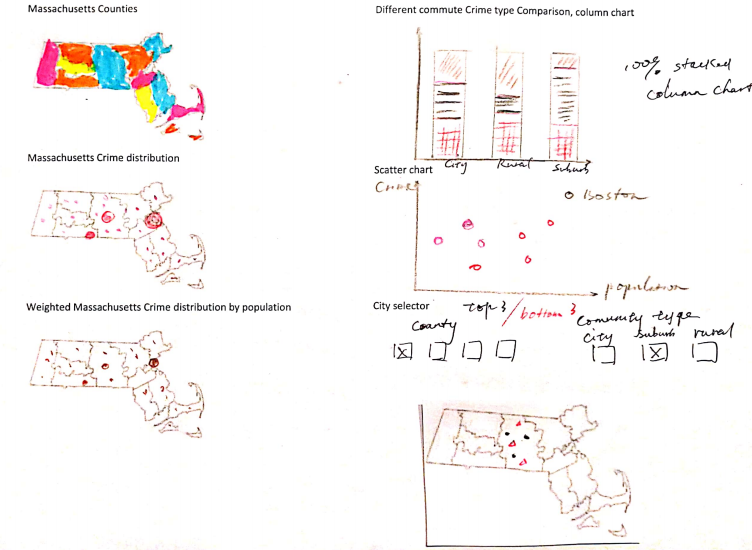 Massachusetts Counties
Massachusetts Crime distribution
Weighted Massachusetts Crime distribution by population
Different commute Crime type Comparison, column chart
100% stacked
column chart
City Rural Suburb
Scatter chart
Boston
population
City selector
top 3 / bottom 3
County
Comunity type
city suburb rural